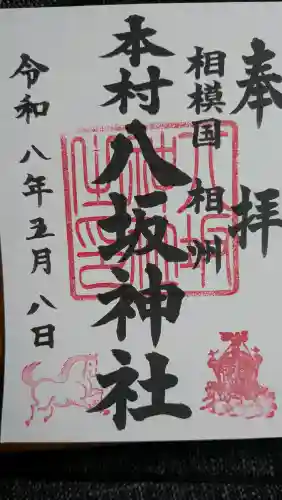 奉拝
相模国 相州
本村八坂神社
令和八年五月八日